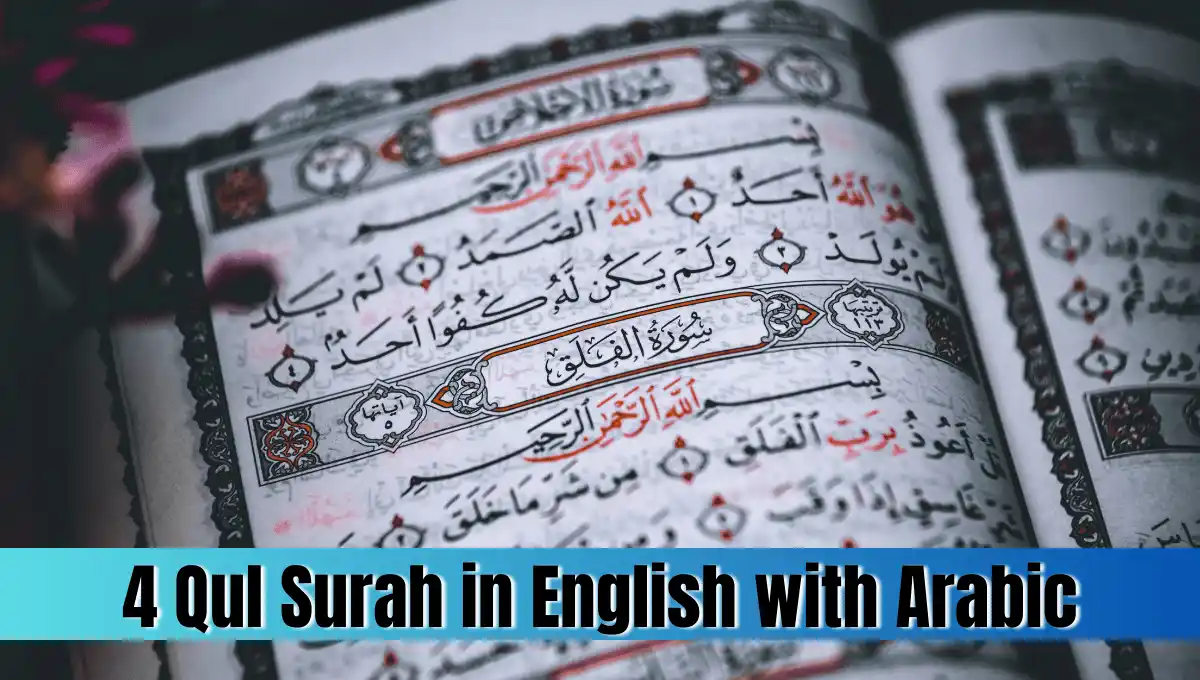 سُورَةُ الإخلاص
بِسْمِ ٱللَّهِ ٱلرَّحْمَٰنِ ٱلرَّحِيمِ
هُوَ ٱللَّهُ أَحَدٌ ١ ٱللَّهُ ٱلصَّمَدُ ٢ لَمْ يَلِدْ
وَلَمْ يُولَدْ ٣ وَلَمْ يَكُن لَّهُۥ كُفُوًا أَحَدٌۢ ٤
ترتيبها ١١٣ سُورَةُ الفَلَق آياتها ٥
بِسْمِ ٱللَّهِ ٱلرَّحْمَٰنِ ٱلرَّحِيمِ
قُلْ أَعُوذُ بِرَبِّ ٱلْفَلَقِ ١ مِن شَرِّ مَا خَلَقَ ٢
غَاسِقٍ إِذَا وَقَبَ ٣ وَمِن
4 Qul Surah in English with Arabic